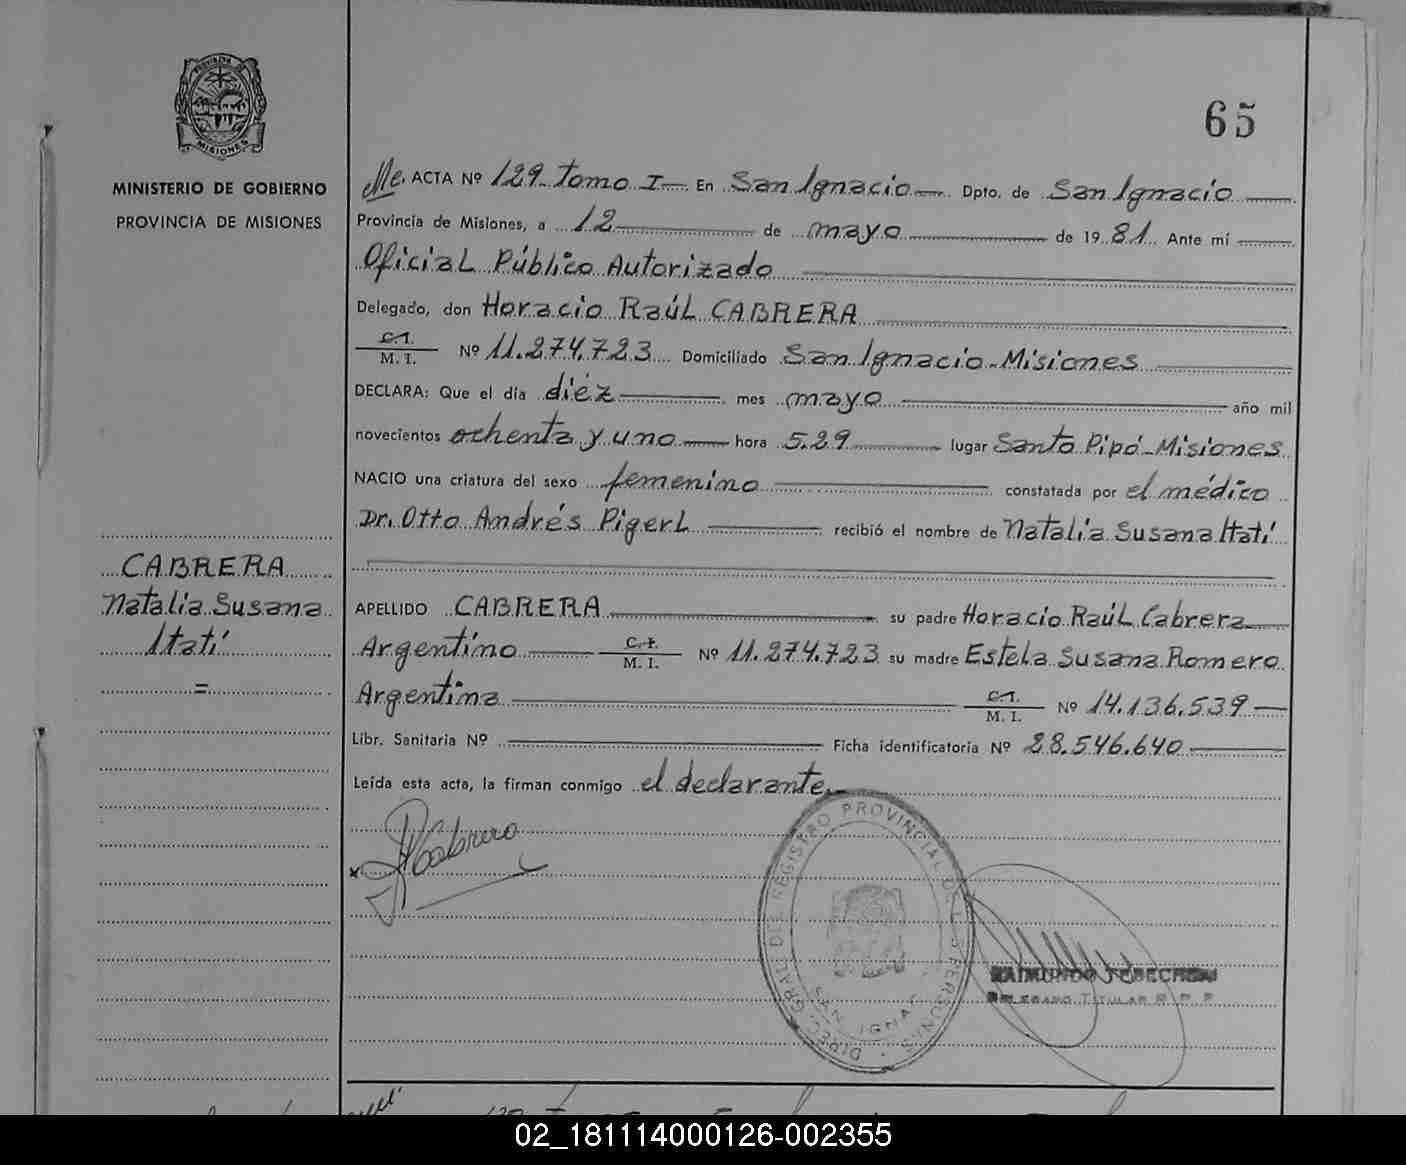 65
PROVINCIA DE
MISIONES
MINISTERIO DE GOBIERNO
PROVINCIA DE MISIONES
ACTA Nº 129 tomo I En San Ignacio Dpto. de San Ignacio
Provincia de Misiones, a 12 de mayo de 19 81 Ante mí
Oficial Público Autorizado
Delegado, don Horacio Raúl CABRERA
C.I.
M. I. Nº 11.274.723 Domiciliado San Ignacio-Misiones
DECLARA: Que el día diéz mes mayo año mil
novecientos ochenta y uno hora 5.29 lugar Santo Pipó-Misiones
NACIO una criatura del sexo femenino constatada por el médico
Dr. Otto Andrés Pigerl recibió el nombre de Natalia Susana Itatí
CABRERA
Natalia Susana
Itatí
=
APELLIDO CABRERA su padre Horacio Raúl Cabrera
Argentino C.I.
M. I. Nº 11.274.723 su madre Estela Susana Romero
Argentina C.I.
M. I. Nº 14.136.539
Libr. Sanitaria Nº Ficha identificatoria Nº 28.546.640
Leída esta acta, la firman conmigo el declarante.
Cabrera
DIREC. GRAL. DEL REGISTRO PROVINCIAL DE LAS PERSONAS
SAN IGNAC
RAIMUNDO
DELEGADO TITULAR R. P. P.
02_181114000126-002355